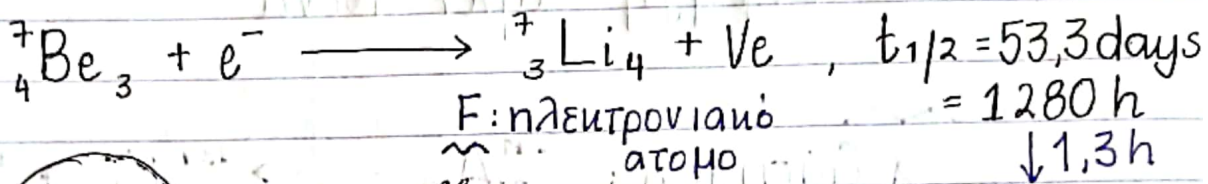 ⁷₄Be₃ + e⁻ ⟶ ⁷₃Li₄ + Ve , t₁/₂ = 53,3 days
= 1280 h
F: ηλεκτρονιακό
ατομο
↓1,3 h